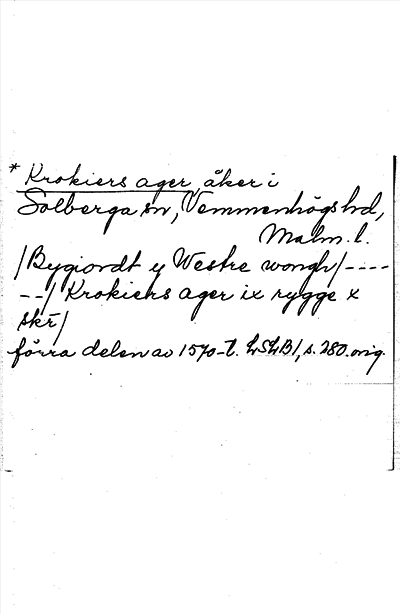 * Krokiers ager, åker i
Solberga sn, Vemmenhögs hd,
Malm. l.
/Bygiordt y Westre wongh/----
--/ Krokiers ager ix rygge x
skr̄/
förra delen av 1570-t. LSLB1, s. 280. orig.